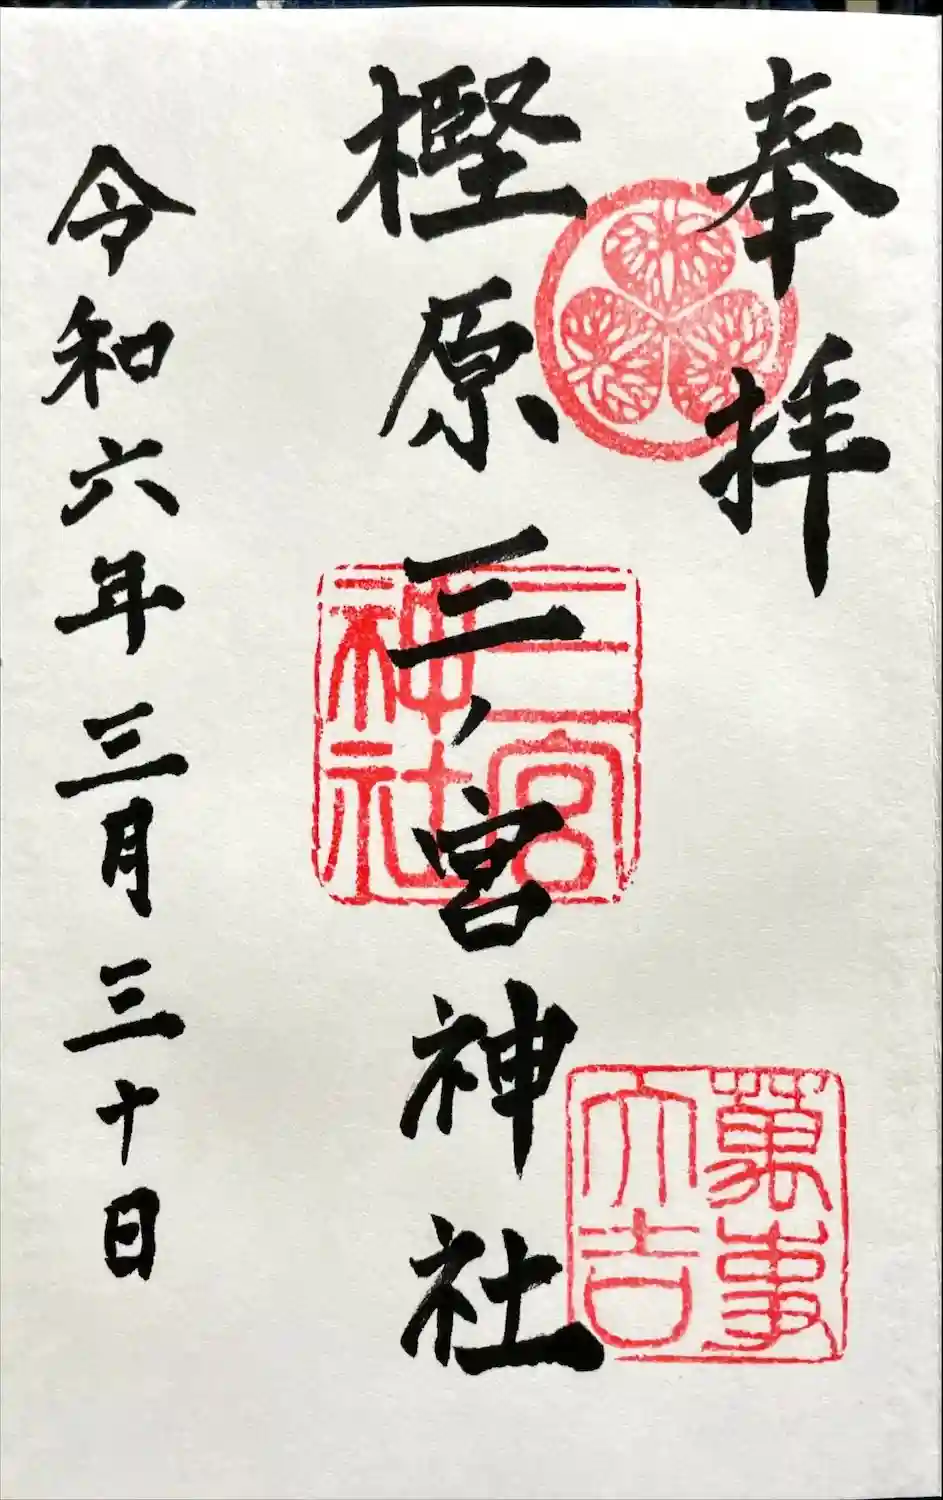 奉拝
樫原三ノ宮神社
令和六年三月三十日
三宮神社
萬事大吉